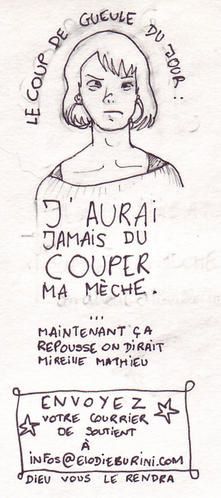 LE COUP DE GUEULE DU JOUR :
J'AURAI
JAMAIS DU
COUPER
MA MÈCHE.
...
MAINTENANT ÇA
REPOUSSE ON DIRAIT
MIREILLE MATHIEU
ENVOYEZ
VOTRE COURRIER
DE SOUTIENT
À
INFOS@ELODIEBURINI.COM
DIEU VOUS LE RENDRA